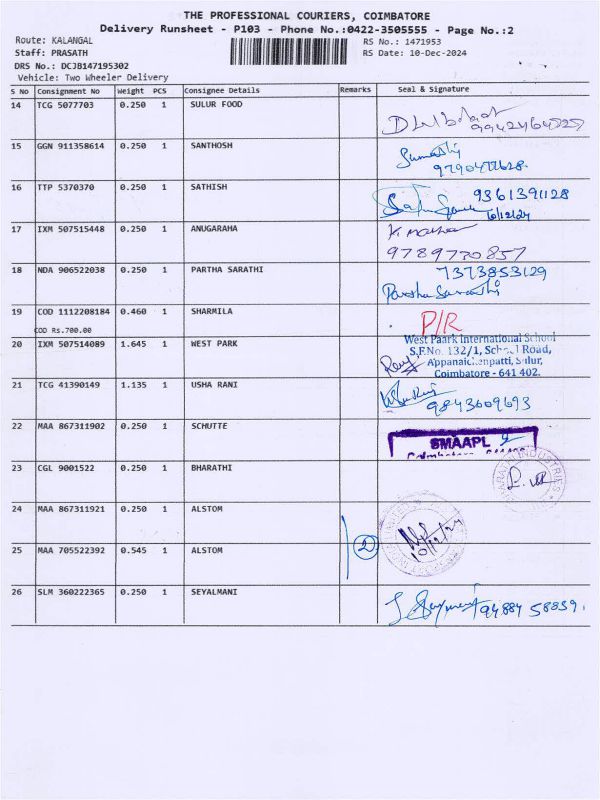 THE PROFESSIONAL COURIERS, COIMBATORE
Delivery Runsheet - P103 - Phone No.:0422-3505555 - Page No.:2
Route: KALANGAL
RS No.: 1471953
Staff: PRASATH
RS Date: 10-Dec-2024
DRS No.: DCJB147195302
Vehicle: Two Wheeler Delivery
S No Consignment No Weight PCS Consignee Details Remarks Seal & Signature
14 TCG 5077703 0.250 1 SULUR FOOD
15 GGN 911358614 0.250 1 SANTHOSH
9790477628
16 TTP 5370370 0.250 1 SATHISH 9361391128
17 IXM 507515448 0.250 1 ANUGARAHA
9789730857
18 NDA 906522038 0.250 1 PARTHA SARATHI 7373853129
Partha Sarathi
19 COD 1112208184 0.460 1 SHARMILA P/R
COD Rs.700.00
20 IXM 507514089 1.645 1 WEST PARK
West Paark International School
S.F.No. 132/1, School Road,
Appanaickenpatti, Sulur,
Coimbatore - 641 402.
21 TCG 41390149 1.135 1 USHA RANI
9843609693
22 MAA 867311902 0.250 1 SCHUTTE
SMAAPL
23 CGL 9001522 0.250 1 BHARATHI
24 MAA 867311921 0.250 1 ALSTOM
2
10/12/24
25 MAA 705522392 0.545 1 ALSTOM
26 SLM 360222365 0.250 1 SEYALMANI
94884 58859.